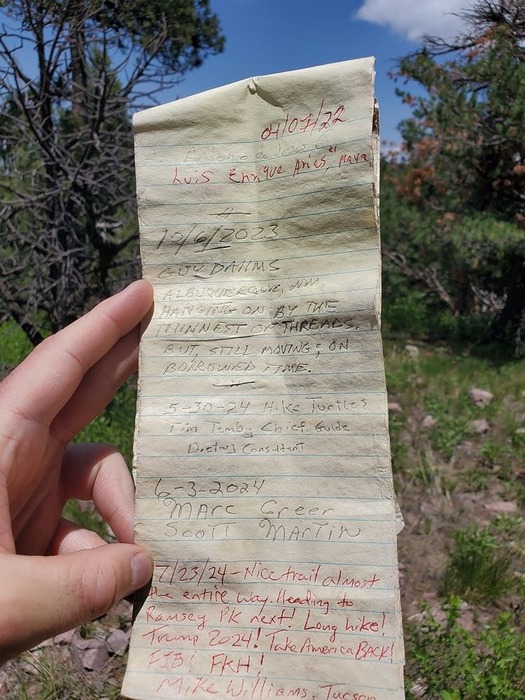 04/07/22
Luis Enrique Aries
10/6/2023
GUY DAHMS
ALBUQUERQUE, NM
HANGING ON BY THE
THINNEST OF THREADS.
BUT, STILL MOVING; ON
BORROWED TIME.
5-30-24 Hike Turtles
Tim Chief Guide
Dietary Consultant
6-3-2024
Marc Greer
Scott Martin
7/23/24 - Nice trail almost
the entire way. Heading to
Ramsey PK next! Long hike!
Trump 2024! Take America Back!
FJB! FKH!
Mike Williams, Tucson